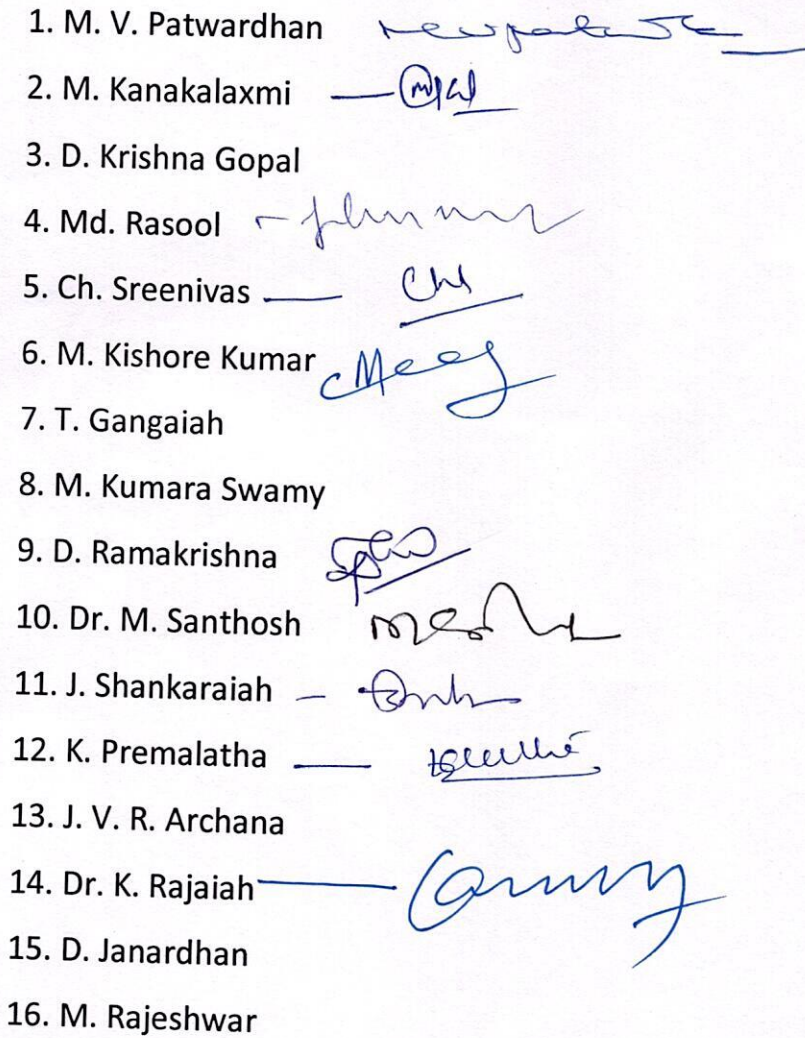 1. M. V. Patwardhan
2. M. Kanakalaxmi
3. D. Krishna Gopal
4. Md. Rasool
5. Ch. Sreenivas
6. M. Kishore Kumar
7. T. Gangaiah
8. M. Kumara Swamy
9. D. Ramakrishna
10. Dr. M. Santhosh
11. J. Shankaraiah
12. K. Premalatha
13. J. V. R. Archana
14. Dr. K. Rajaiah
15. D. Janardhan
16. M. Rajeshwar